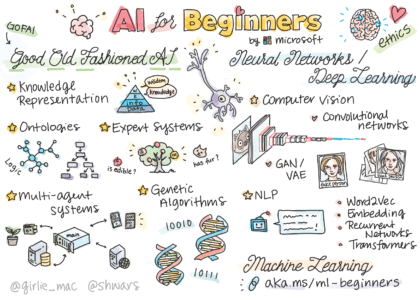 GOFAI
AI for Beginners
by microsoft
ethics
Good Old Fashioned AI
Neural Networks /
Deep Learning
Knowledge
Representation
wisdom
knowledge
info
Data
Computer Vision
Convolutional
networks
Ontologies
Expert Systems
Logic
is edible?
has fur?
GAN/
VAE
fake person
Multi-agent
systems
Genetic
Algorithms
main
10010
10111
NLP
Word2Vec
Embedding
Recurrent
Networks
Transformers
Machine Learning
aka.ms/ml-beginners
@girlie_mac @shwars